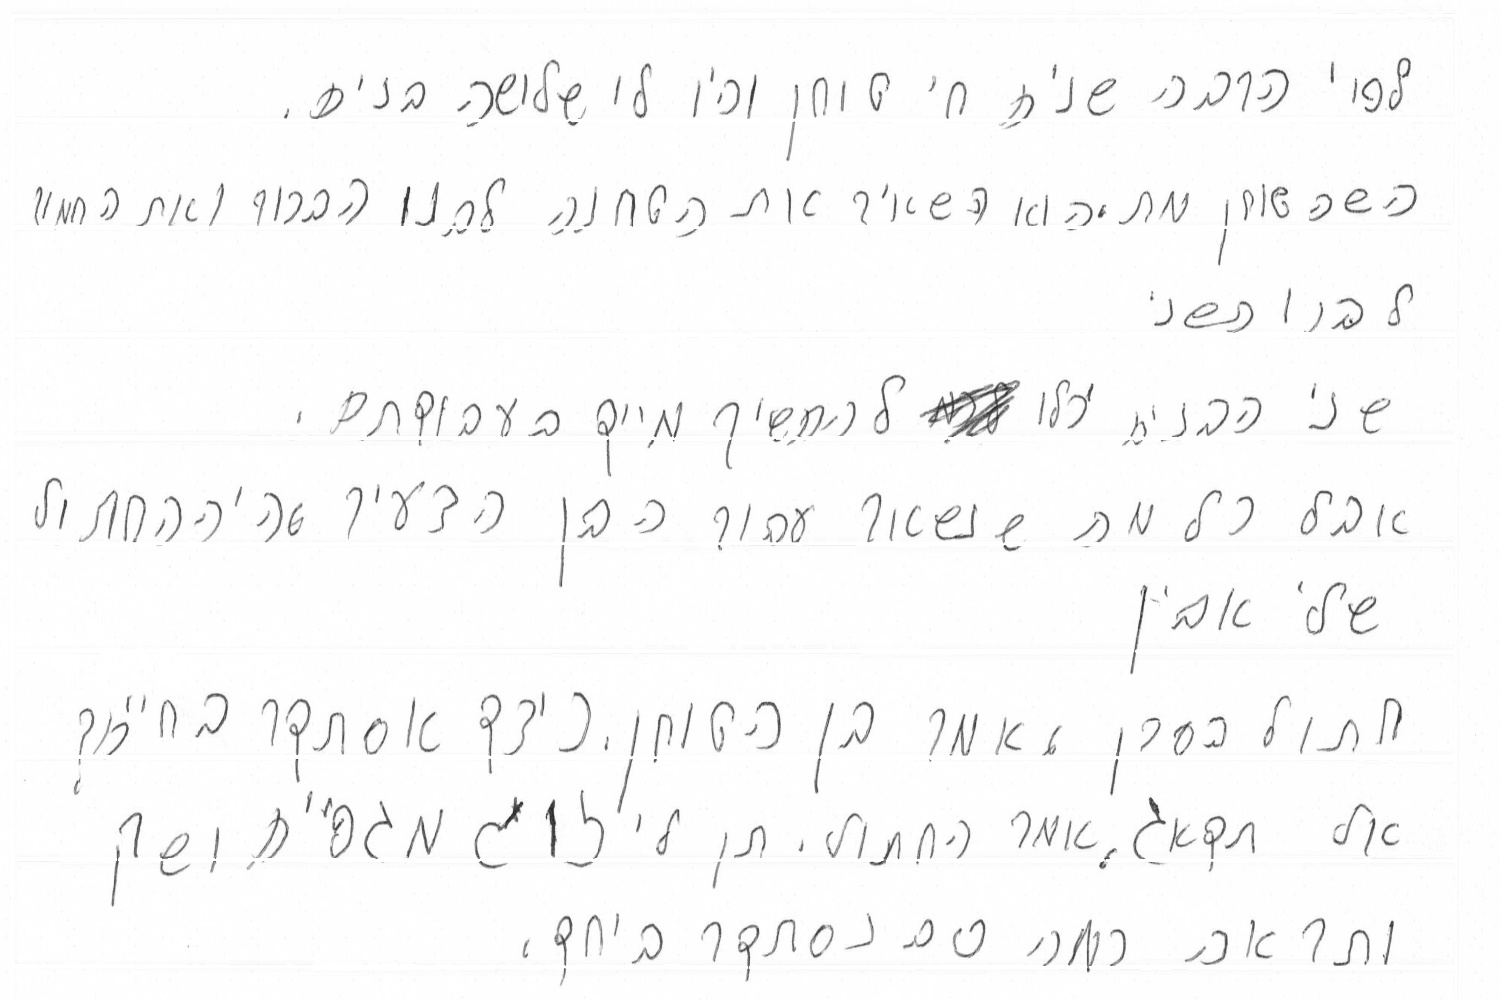 לפני הרבה שנים חי טוחן והיו לו שלושה בנים.
השהטוחן מת, הוא השאיר את הטחנה לבנו הבכור ואת החמור
לבנו השני
שני הבנים יכלו להמשיך מייד בעבודתם.
אבל כל מה שנשאר עבור הבן הצעיר היה החתול
שלי אביו
חתול מסכן, אמר בן הטוחן. כיצד אסתדר בחיי
אל תדאג, אמר החתול. תן לי זוג מגפיים ושק
ותראה כמה טוב נסתדר ביחד.